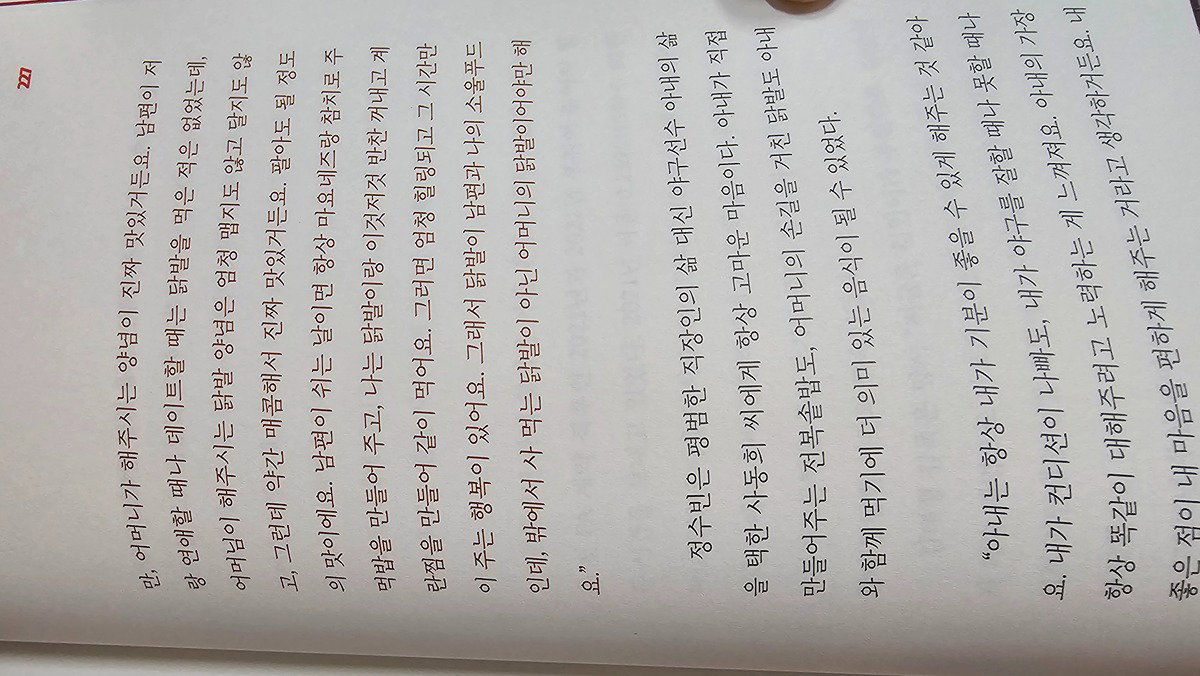 227
만, 어머니가 해주시는 양념이 진짜 맛있거든요. 남편이 저
랑 연애할 때나 데이트할 때는 닭발을 먹은 적은 없었는데,
어머님이 해주시는 닭발 양념은 엄청 맵지도 않고 달지도 않
고, 그런데 약간 매콤해서 진짜 맛있거든요. 팔아도 될 정도
의 맛이에요. 남편이 쉬는 날이면 항상 마요네즈랑 참치로 주
먹밥을 만들어 주고, 나는 닭발이랑 이것저것 반찬 꺼내고 계
란찜을 만들어 같이 먹어요. 그러면 엄청 힐링되고 그 시간만
이 주는 행복이 있어요. 그래서 닭발이 남편과 나의 소울푸드
인데, 밖에서 사 먹는 닭발이 아닌 어머니의 닭발이어야만 해
요.”
정수빈은 평범한 직장인의 삶 대신 야구선수 아내의 삶
을 택한 사동희 씨에게 항상 고마운 마음이다. 아내가 직접
만들어주는 전복솥밥도, 어머니의 손길을 거친 닭발도 아내
와 함께 먹기에 더 의미 있는 음식이 될 수 있었다.
“아내는 항상 내가 기분이 좋을 수 있게 해주는 것 같아
요. 내가 컨디션이 나빠도, 내가 야구를 잘할 때나 못할 때나
항상 똑같이 대해주려고 노력하는 게 느껴져요. 아내의 가장
좋은 점이 내 마음을 편하게 해주는 거라고 생각하거든요. 내